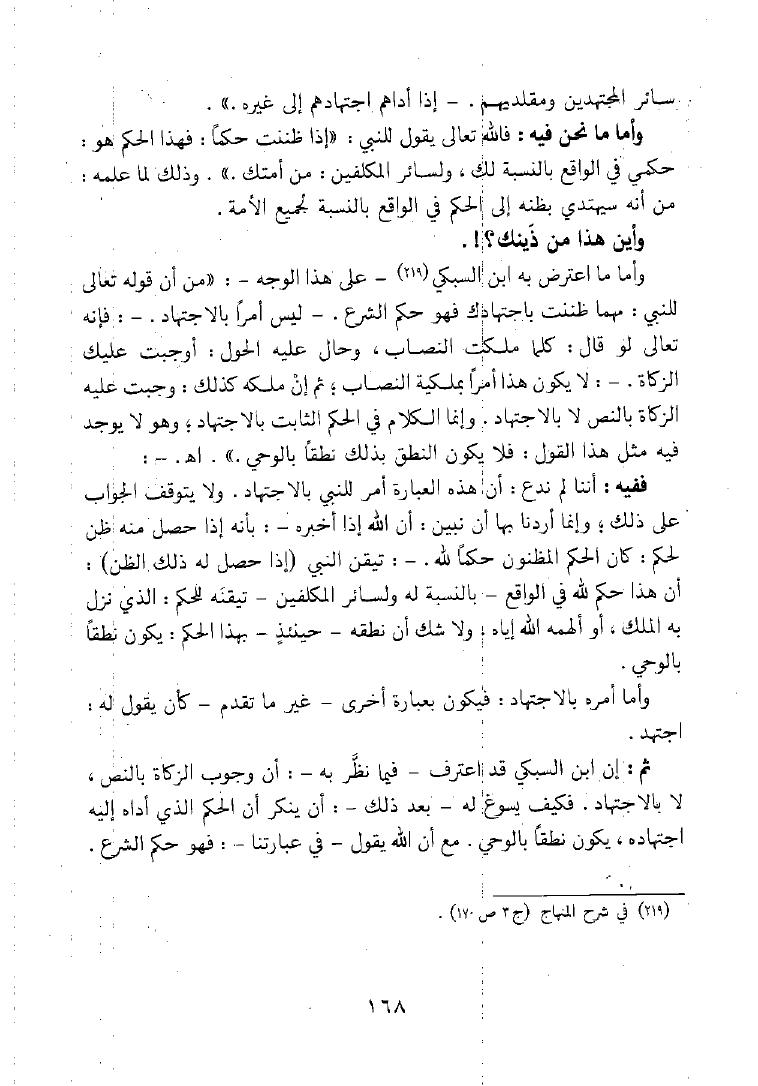 سائر المجتهدين ومقلديهم . - إذا أداهم اجتهادهم إلى غيره .» .
وأما ما نحن فيه : فالله تعالى يقول للنبي : «إذا ظننت حكماً : فهذا الحكم هو :
حكمي في الواقع بالنسبة لك ، ولسائر المكلفين : من أمتك .» . وذلك لما علمه :
من أنه سيهتدي بظنه إلى الحكم في الواقع بالنسبة لجميع الأمة .
وأين هذا من ذَينك؟! .
وأما ما اعترض به ابن السبكي (٢١٩) - على هذا الوجه - : «من أن قوله تعالى
للنبي : مهما ظننت باجتهادك فهو حكم الشرع . - ليس أمراً بالاجتهاد . - : فإنه
تعالى لو قال : كلما ملكت النصاب ، وحال عليه الحول : أوجبت عليك
الزكاة . - : لا يكون هذا أمراً بملكية النصاب ؛ ثم إنْ ملكه كذلك : وجبت عليه
الزكاة بالنص لا بالاجتهاد . وإنما الكلام في الحكم الثابت بالاجتهاد ؛ وهو لا يوجد
فيه مثل هذا القول : فلا يكون النطق بذلك نطقاً بالوحي .» . اهـ . - :
ففيه : أننا لم ندع : أن هذه العبارة أمر للنبي بالاجتهاد . ولا يتوقف الجواب
على ذلك ؛ وإنما أردنا بها أن نبين : أن الله إذا أخبره - : بأنه إذا حصل منه ظن
لحكم : كان الحكم المظنون حكماً لله . - : تيقن النبي (إذا حصل له ذلك الظن) :
أن هذا حكم لله في الواقع - بالنسبة له ولسائر المكلفين - تيقنَه للحكم : الذي نزل
به الملك ، أو ألهمه الله إياه ؛ ولا شك أن نطقه - حينئذٍ - بهذا الحكم : يكون نطقاً
بالوحي .
وأما أمره بالاجتهاد : فيكون بعبارة أخرى - غير ما تقدم - كأن يقول له :
اجتهد .
ثم : إن ابن السبكي قد اعترف - فيما نظَّر به - : أن وجوب الزكاة بالنص ،
لا بالاجتهاد . فكيف يسوغ له - بعد ذلك - : أن ينكر أن الحكم الذي أداه إليه
اجتهاده ، يكون نطقاً بالوحي . مع أن الله يقول - في عبارتنا - : فهو حكم الشرع .
(٢١٩) في شرح المنهاج (ج ٣ ص ١٧٠) .
١٦٨